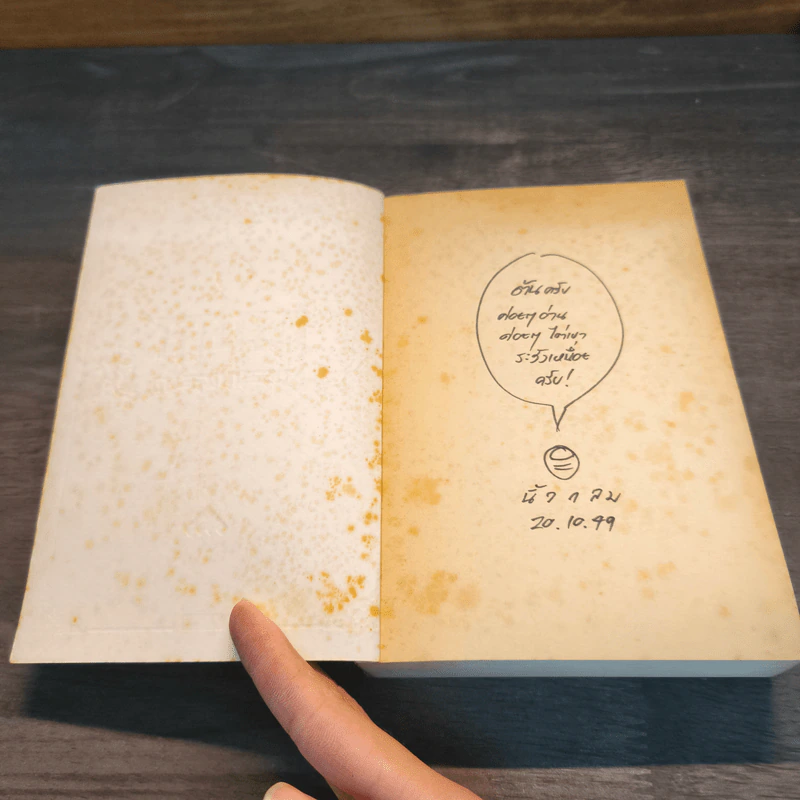 อ้วนครับ
ค่อยๆ อ่าน
ค่อยๆ ไต่เขา
ระวังเหนื่อย
ครับ!
นิ้วกลม
20.10.49